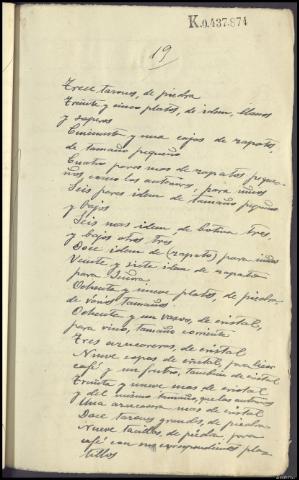 K.0.437.874
19
Trece tarros, de piedra
Treinta y cinco platos, de idem, llanos
y soperos
Cincuenta y una cajas de zapatos,
de tamaño pequeño
Cuatro pares mas de zapatos peque-
ños, como los anteriores, para niños
Seis pares idem de tamaño pequeño
y bajos
Seis mas idem de botina tres
y bajos otros tres
Doce idem de (zapato) para niños
Veinte y siete idem de zapatos
para
Ochenta y nueve platos, de piedra
de varios tamaños
Ochenta y un vasos, de cristal,
para vino, tamaño corriente
Tres azucareros, de cristal
Nueve copas de cristal, para licor
café y un frutero, tambien de cristal
Treinta y nueve mas de cristal
y del mismo tamaño, que los anteriores
Una azucarera mas de cristal
Doce tarros grandes, de piedra
Nueve tacillas, de piedra para
café con sus correspondientes pla-
tillos